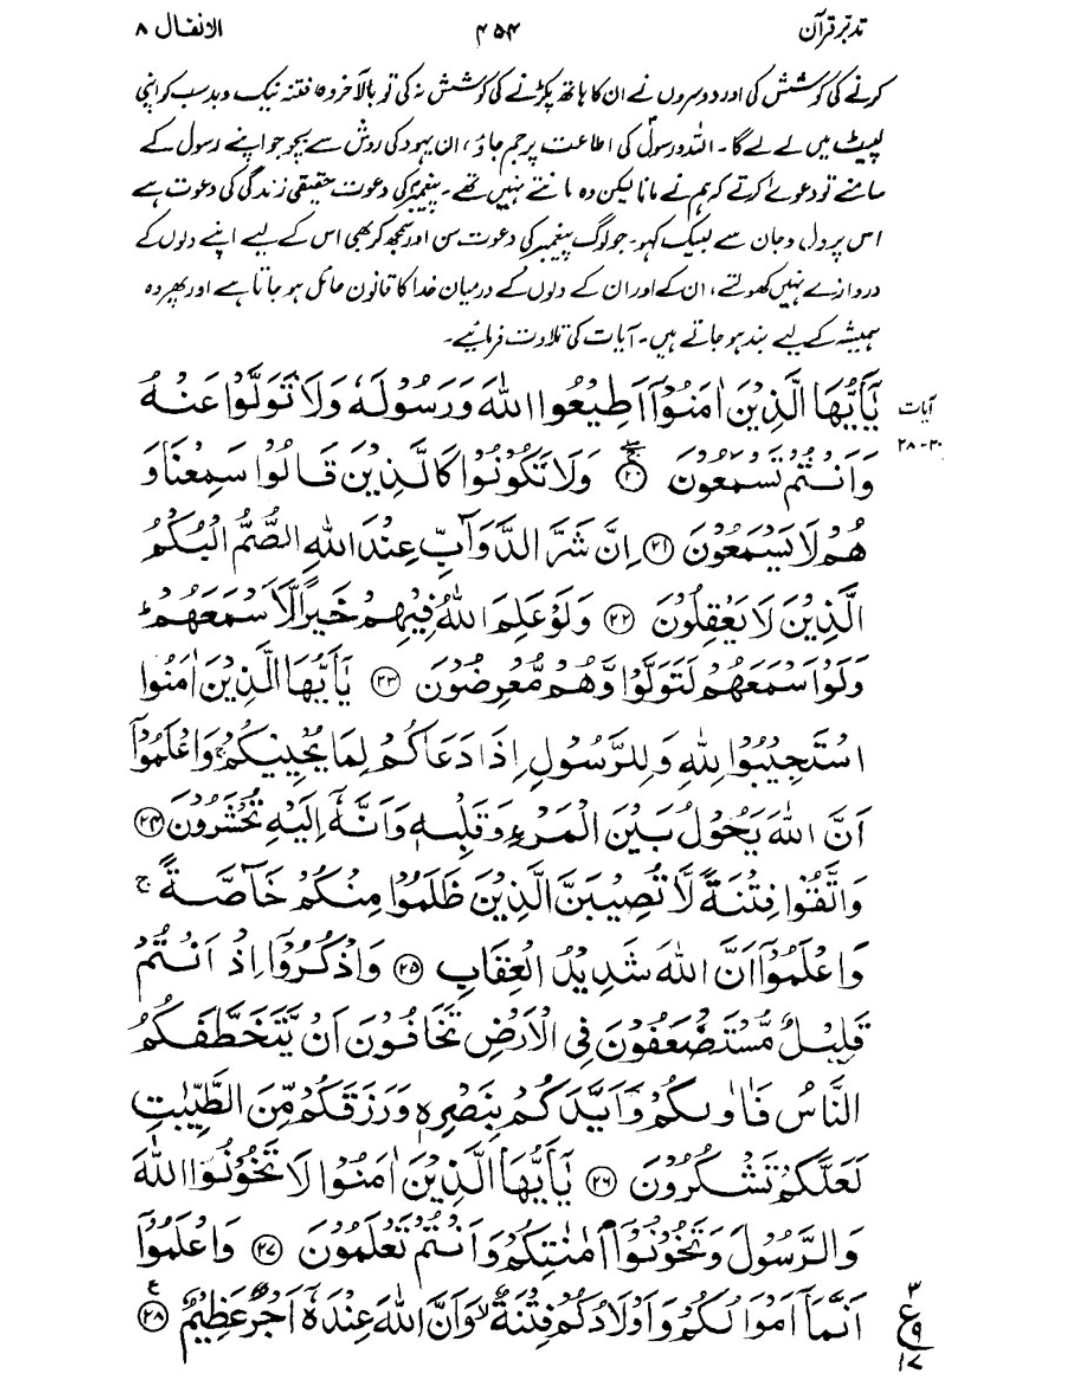 تدبّر قرآن ۴۵۴ الانفال ۸
کونے کی کوشش کی اور دوسروں نے ان کا ہاتھ پکڑنے کی کوشش نہ کی تو بالآخر وہ فتنہ نیک و بد سب کو اپنی
لپیٹ میں لے لے گا۔ اللہ و رسولؐ کی اطاعت پر جم جاؤ، ان یہود کی روش سے بچو جو اپنے رسول کے
سامنے تو دعوےٰ کرتے کہ ہم نے مانا لیکن وہ مانتے نہیں تھے۔ پیغمبر کی دعوت حقیقی زندگی کی دعوت ہے
اس پر دل و جان سے لبیک کہو۔ جو لوگ پیغمبر کی دعوت سن اور سمجھ کر بھی اس کے لیے اپنے دلوں کے
دروازے نہیں کھولتے، ان کے اور ان کے دلوں کے درمیان خدا کا قانون حائل ہو جاتا ہے اور پھر وہ
ہمیشہ کے لیے بند ہو جاتے ہیں۔ آیات کی تلاوت فرمائیے۔
آیات
۲۰-۲۸
يَٰٓأَيُّهَا الَّذِيْنَ اٰمَنُوْٓا اَطِيْعُوا اللّٰهَ وَرَسُوْلَهٗ وَلَا تَوَلَّوْا عَنْهُ
وَاَنْتُمْ تَسْمَعُوْنَ ﴿۲۰﴾ وَلَا تَكُوْنُوْا كَالَّذِيْنَ قَالُوْا سَمِعْنَا وَ
هُمْ لَا يَسْمَعُوْنَ ﴿۲۱﴾ اِنَّ شَرَّ الدَّوَآبِّ عِنْدَ اللّٰهِ الصُّمُّ الْبُكْمُ
الَّذِيْنَ لَا يَعْقِلُوْنَ ﴿۲۲﴾ وَلَوْ عَلِمَ اللّٰهُ فِيْهِمْ خَيْرًا لَّاَسْمَعَهُمْ ؕ
وَلَوْ اَسْمَعَهُمْ لَتَوَلَّوْا وَّهُمْ مُّعْرِضُوْنَ ﴿۲۳﴾ يٰٓاَيُّهَا الَّذِيْنَ اٰمَنُوا
اسْتَجِيْبُوْا لِلّٰهِ وَلِلرَّسُوْلِ اِذَا دَعَاكُمْ لِمَا يُحْيِيْكُمْ ۚ وَاعْلَمُوْٓا
اَنَّ اللّٰهَ يَحُوْلُ بَيْنَ الْمَرْءِ وَقَلْبِهٖ وَاَنَّهٗٓ اِلَيْهِ تُحْشَرُوْنَ ﴿۲۴﴾
وَاتَّقُوْا فِتْنَةً لَّا تُصِيْبَنَّ الَّذِيْنَ ظَلَمُوْا مِنْكُمْ خَآصَّةً ۚ
وَاعْلَمُوْٓا اَنَّ اللّٰهَ شَدِيْدُ الْعِقَابِ ﴿۲۵﴾ وَاذْكُرُوْٓا اِذْ اَنْتُمْ
قَلِيْلٌ مُّسْتَضْعَفُوْنَ فِي الْاَرْضِ تَخَافُوْنَ اَنْ يَّتَخَطَّفَكُمُ
النَّاسُ فَاٰوٰىكُمْ وَاَيَّدَكُمْ بِنَصْرِهٖ وَرَزَقَكُمْ مِّنَ الطَّيِّبٰتِ
لَعَلَّكُمْ تَشْكُرُوْنَ ﴿۲۶﴾ يٰٓاَيُّهَا الَّذِيْنَ اٰمَنُوْا لَا تَخُوْنُوا اللّٰهَ
وَالرَّسُوْلَ وَتَخُوْنُوْٓا اَمٰنٰتِكُمْ وَاَنْتُمْ تَعْلَمُوْنَ ﴿۲۷﴾ وَاعْلَمُوْٓا
اَنَّمَآ اَمْوَالُكُمْ وَاَوْلَادُكُمْ فِتْنَةٌ ۙ وَّاَنَّ اللّٰهَ عِنْدَهٗٓ اَجْرٌ عَظِيْمٌ ﴿۲۸﴾
۳
ع
۹
۱۷